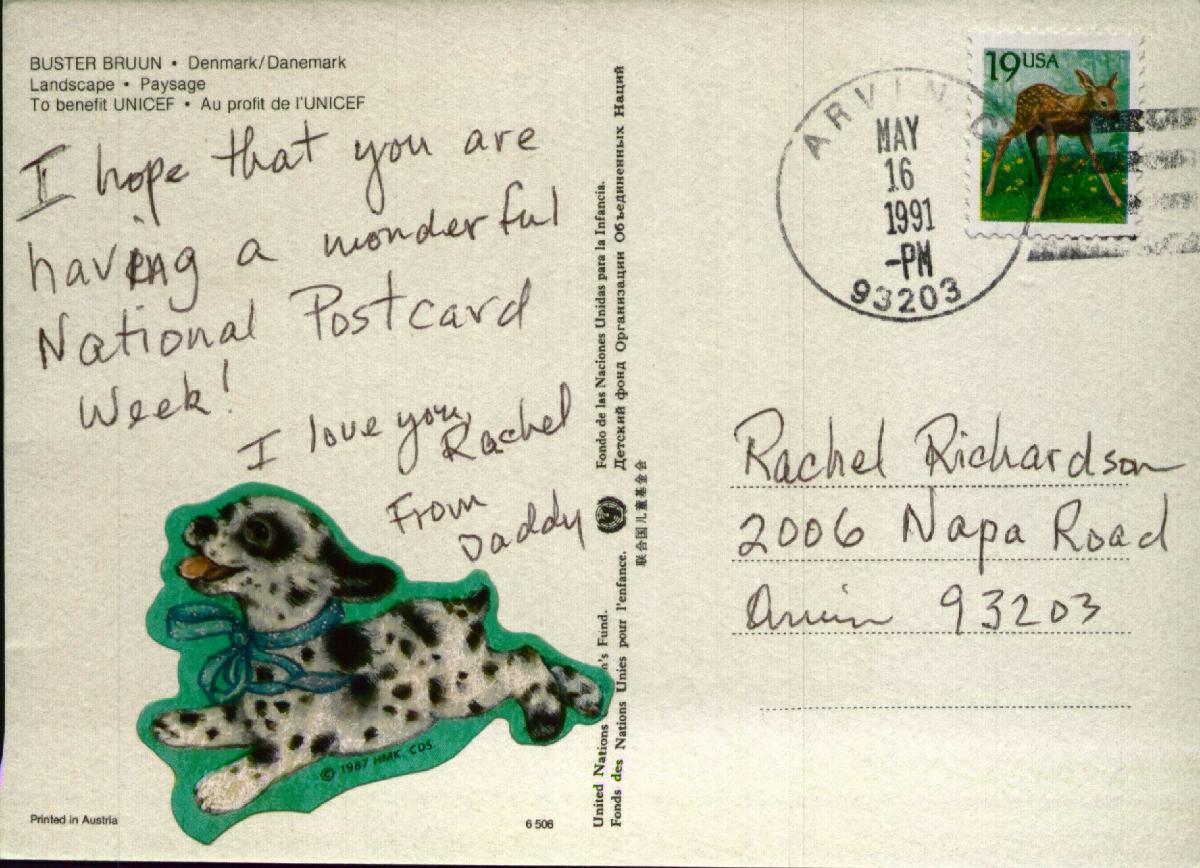 BUSTER BRUUN • Denmark/Danemark
Landscape • Paysage
To benefit UNICEF • Au profit de l'UNICEF
I hope that you are
having a wonderful
National Postcard
Week!
I love you,
Rachel
From
Daddy
© 1987 HMK. CDS.
Printed in Austria
6 506
Fondo de las Naciones Unidas para la Infancia.
Детский фонд Организации Объединенных Наций
联合国儿童基金会
United Nations n's Fund.
Fonds des Nations Unies pour l'enfance.
ARVIN, C
MAY
16
1991
-PM
93203
19USA
Rachel Richardson
2006 Napa Road
Arvin 93203